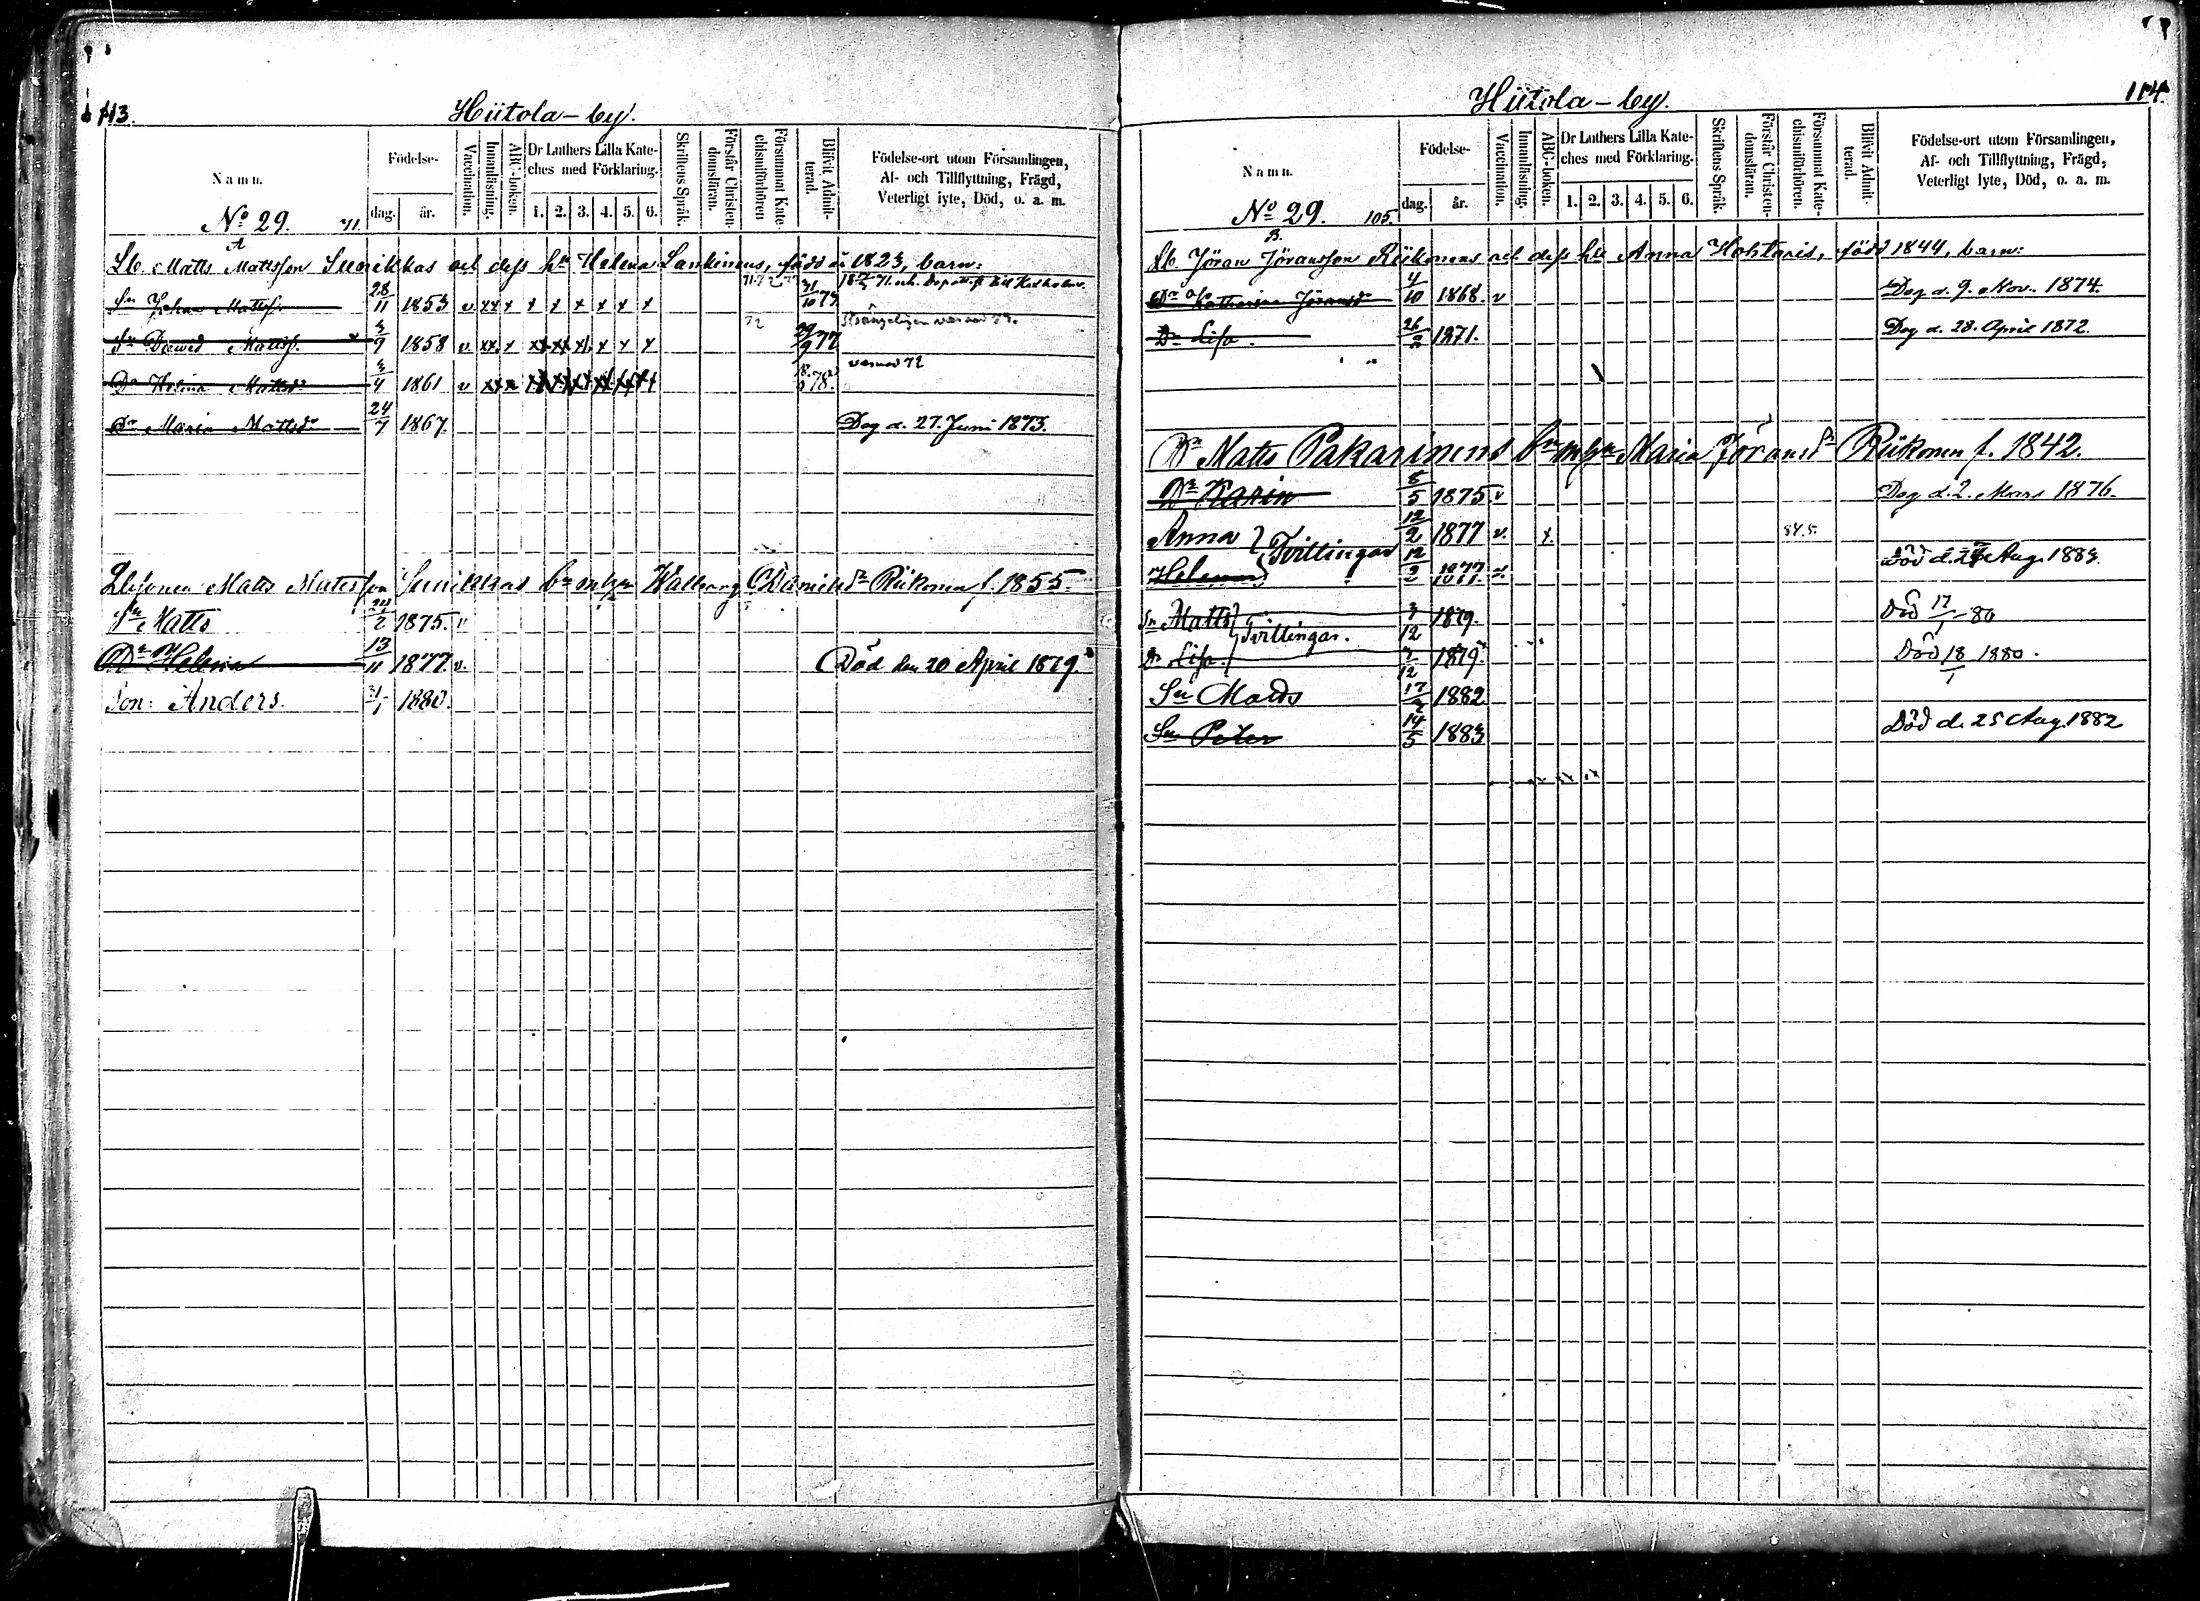 113.
Hiitola-by.
Namn.
Födelse-
dag.
år.
Vaccination.
Innanläsning.
ABC-boken.
Dr Luthers Lilla Kate-
ches med Förklaring.
1. 2. 3. 4. 5. 6.
Skriftens Språk.
Förstår Christen-
domsläran.
Försummat Kate-
chismiförhören
Blifvit Admit-
terad.
Födelse-ort utom Församlingen,
Af- och Tillflyttning, Frägd,
Veterligt lyte, Död, o. a. m.
No 29. 71.
A
Lb. Matts Mattsson Suurikkas och dess hu Helena Lankinens, född år 1823, barn:
Sn Johan Mattss. 28/11 1853 v xx x x x x x x x 31/10 73.
Sn Dawid Mattss. 3/9 1858 v xx x xx xx xx x x x 72 29/9 77
Dr Helena Mattsdr 3/4 1861 v 78. 72
Dr Maria Mattsdr 24/7 1867. Dog d. 27. Juni 1873.
Lbsonen Matts Matsson Suurikkas bn m hu Walborg Danielsdr Riikonen f. 1855.
Sn Matts 2 1875. v
Dr Helena 13/11 1877. v. Död den 20 April 1879.
Son: Anders. 31/1 1880.
114.
Hiitola-by.
Namn.
Födelse-
dag.
år.
Vaccination.
Innanläsning.
ABC-boken.
Dr Luthers Lilla Kate-
ches med Förklaring.
1. 2. 3. 4. 5. 6.
Skriftens Språk.
Förstår Christen-
domsläran.
Försummat Kate-
chismiförhören.
Blifvit Admit-
terad.
Födelse-ort utom Församlingen,
Af- och Tillflyttning, Frägd,
Veterligt lyte, Död, o. a. m.
No 29. 105.
B.
Lb. Jöran Jöransson Riikonens och dess hu Anna Hohtaris, född 1844, barn:
Dr Katharina Jöransdr 4/10 1868. v Dog d. 9. Nov. 1874.
Dr Lisa. 26/2 1871. Dog d. 28. April 1872.
Matts Pakarinens bn m hu Maria Jöransdr Riikonen f. 1842.
Dr Karin 5 1875 v Dog d. 2. Mars 1876.
Anna } Tvillingar 12/2 1877 v. x 84.5.
Helena 12/2 1877 v. Död d. Aug. 1883.
Sn Matts } Tvillingar. 7/12 1879. Död 17/1 80
Dr Lisa. 7/12 1879. Död 18/1 1880.
Sn Matts 17 1882
Sn Peter 14/5 1883 Död d. 25 Aug. 1882